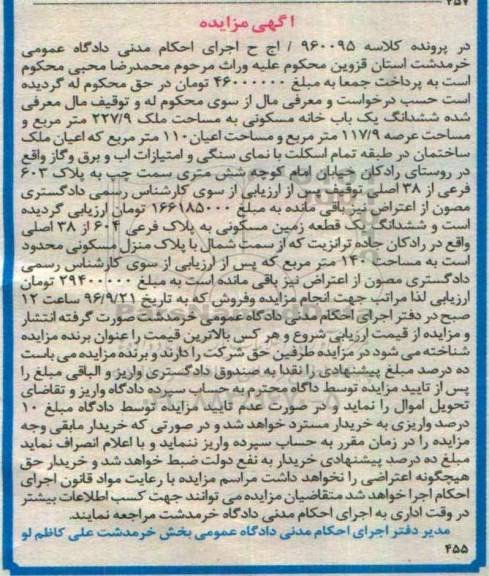 ۲۵۷
آگهی مزایده
در پرونده کلاسه ۹۶۰۰۹۵ / اج ح اجرای احکام مدنی دادگاه عمومی
خرمدشت استان قزوین محکوم علیه وراث مرحوم محمدرضا محبی محکوم
است به پرداخت جمعا به مبلغ ۴۶۰۰۰۰۰۰ تومان در حق محکوم له گردیده
است حسب درخواست و معرفی مال از سوی محکوم له و توقیف مال معرفی
شده ششدانگ یک باب خانه مسکونی به مساحت ملک ۲۲۷/۹ متر مربع و
مساحت عرصه ۱۱۷/۹ متر مربع و مساحت اعیان ۱۱۰ متر مربع که اعیان ملک
ساختمان در طبقه تمام اسکلت با نمای سنگی و امتیازات اب و برق وگاز واقع
در روستای رادکان خیابان امام کوچه شش متری سمت چپ به پلاک ۶۰۳
فرعی از ۳۸ اصلی توقیف پس از ارزیابی از سوی کارشناس رسمی دادگستری
مصون از اعتراض نیز باقی مانده به مبلغ ۱۶۶۱۸۵۰۰۰ تومان ارزیابی گردیده
است و ششدانگ یک قطعه زمین مسکونی به پلاک فرعی ۶۰۴ از ۳۸ اصلی
واقع در رادکان جاده ترانزیت که از سمت شمال با پلاک منزل مسکونی محدود
است به مساحت ۱۴۰ متر مربع که پس از ارزیابی از سوی کارشناس رسمی
دادگستری مصون از اعتراض نیز باقی مانده است به مبلغ ۲۹۴۰۰۰۰۰ تومان
ارزیابی لذا مراتب جهت انجام مزایده وفروش که به تاریخ ۹۶/۹/۲۱ ساعت ۱۲
صبح در دفتر اجرای احکام مدنی دادگاه عمومی خرمدشت صورت گرفته انتشار
و مزایده از قیمت ارزیابی شروع و هر کس بالاترین قیمت را عنوان برنده مزایده
شناخته می شود در مزایده طرفین حق شرکت را دارند و برنده مزایده می باست
ده درصد مبلغ پیشنهادی را نقدا به صندوق دادگستری واریز و الباقی مبلغ را
پس از تایید مزایده توسط داگاه محترم به حساب سپرده دادگاه واریز و تقاضای
تحویل اموال را نماید و در صورت عدم تایید مزایده توسط دادگاه مبلغ ۱۰
درصد واریزی به خریدار مسترد خواهد شد و در صورتی که خریدار مابقی وجه
مزایده را در زمان مقرر به حساب سپرده واریز ننماید و با اعلام انصراف نماید
مبلغ ده درصد پیشنهادی خریدار به نفع دولت ضبط خواهد شد و خریدار حق
هیچگونه اعتراضی را نخواهد داشت مراسم مزایده با رعایت مواد قانون اجرای
احکام اجرا خواهد شد متقاضیان مزایده می توانند جهت کسب اطلاعات بیشتر
در وقت اداری به اجرای احکام مدنی دادگاه خرمدشت مراجعه نمایند.
مدیر دفتر اجرای احکام مدنی دادگاه عمومی بخش خرمدشت علی کاظم لو
۴۵۵